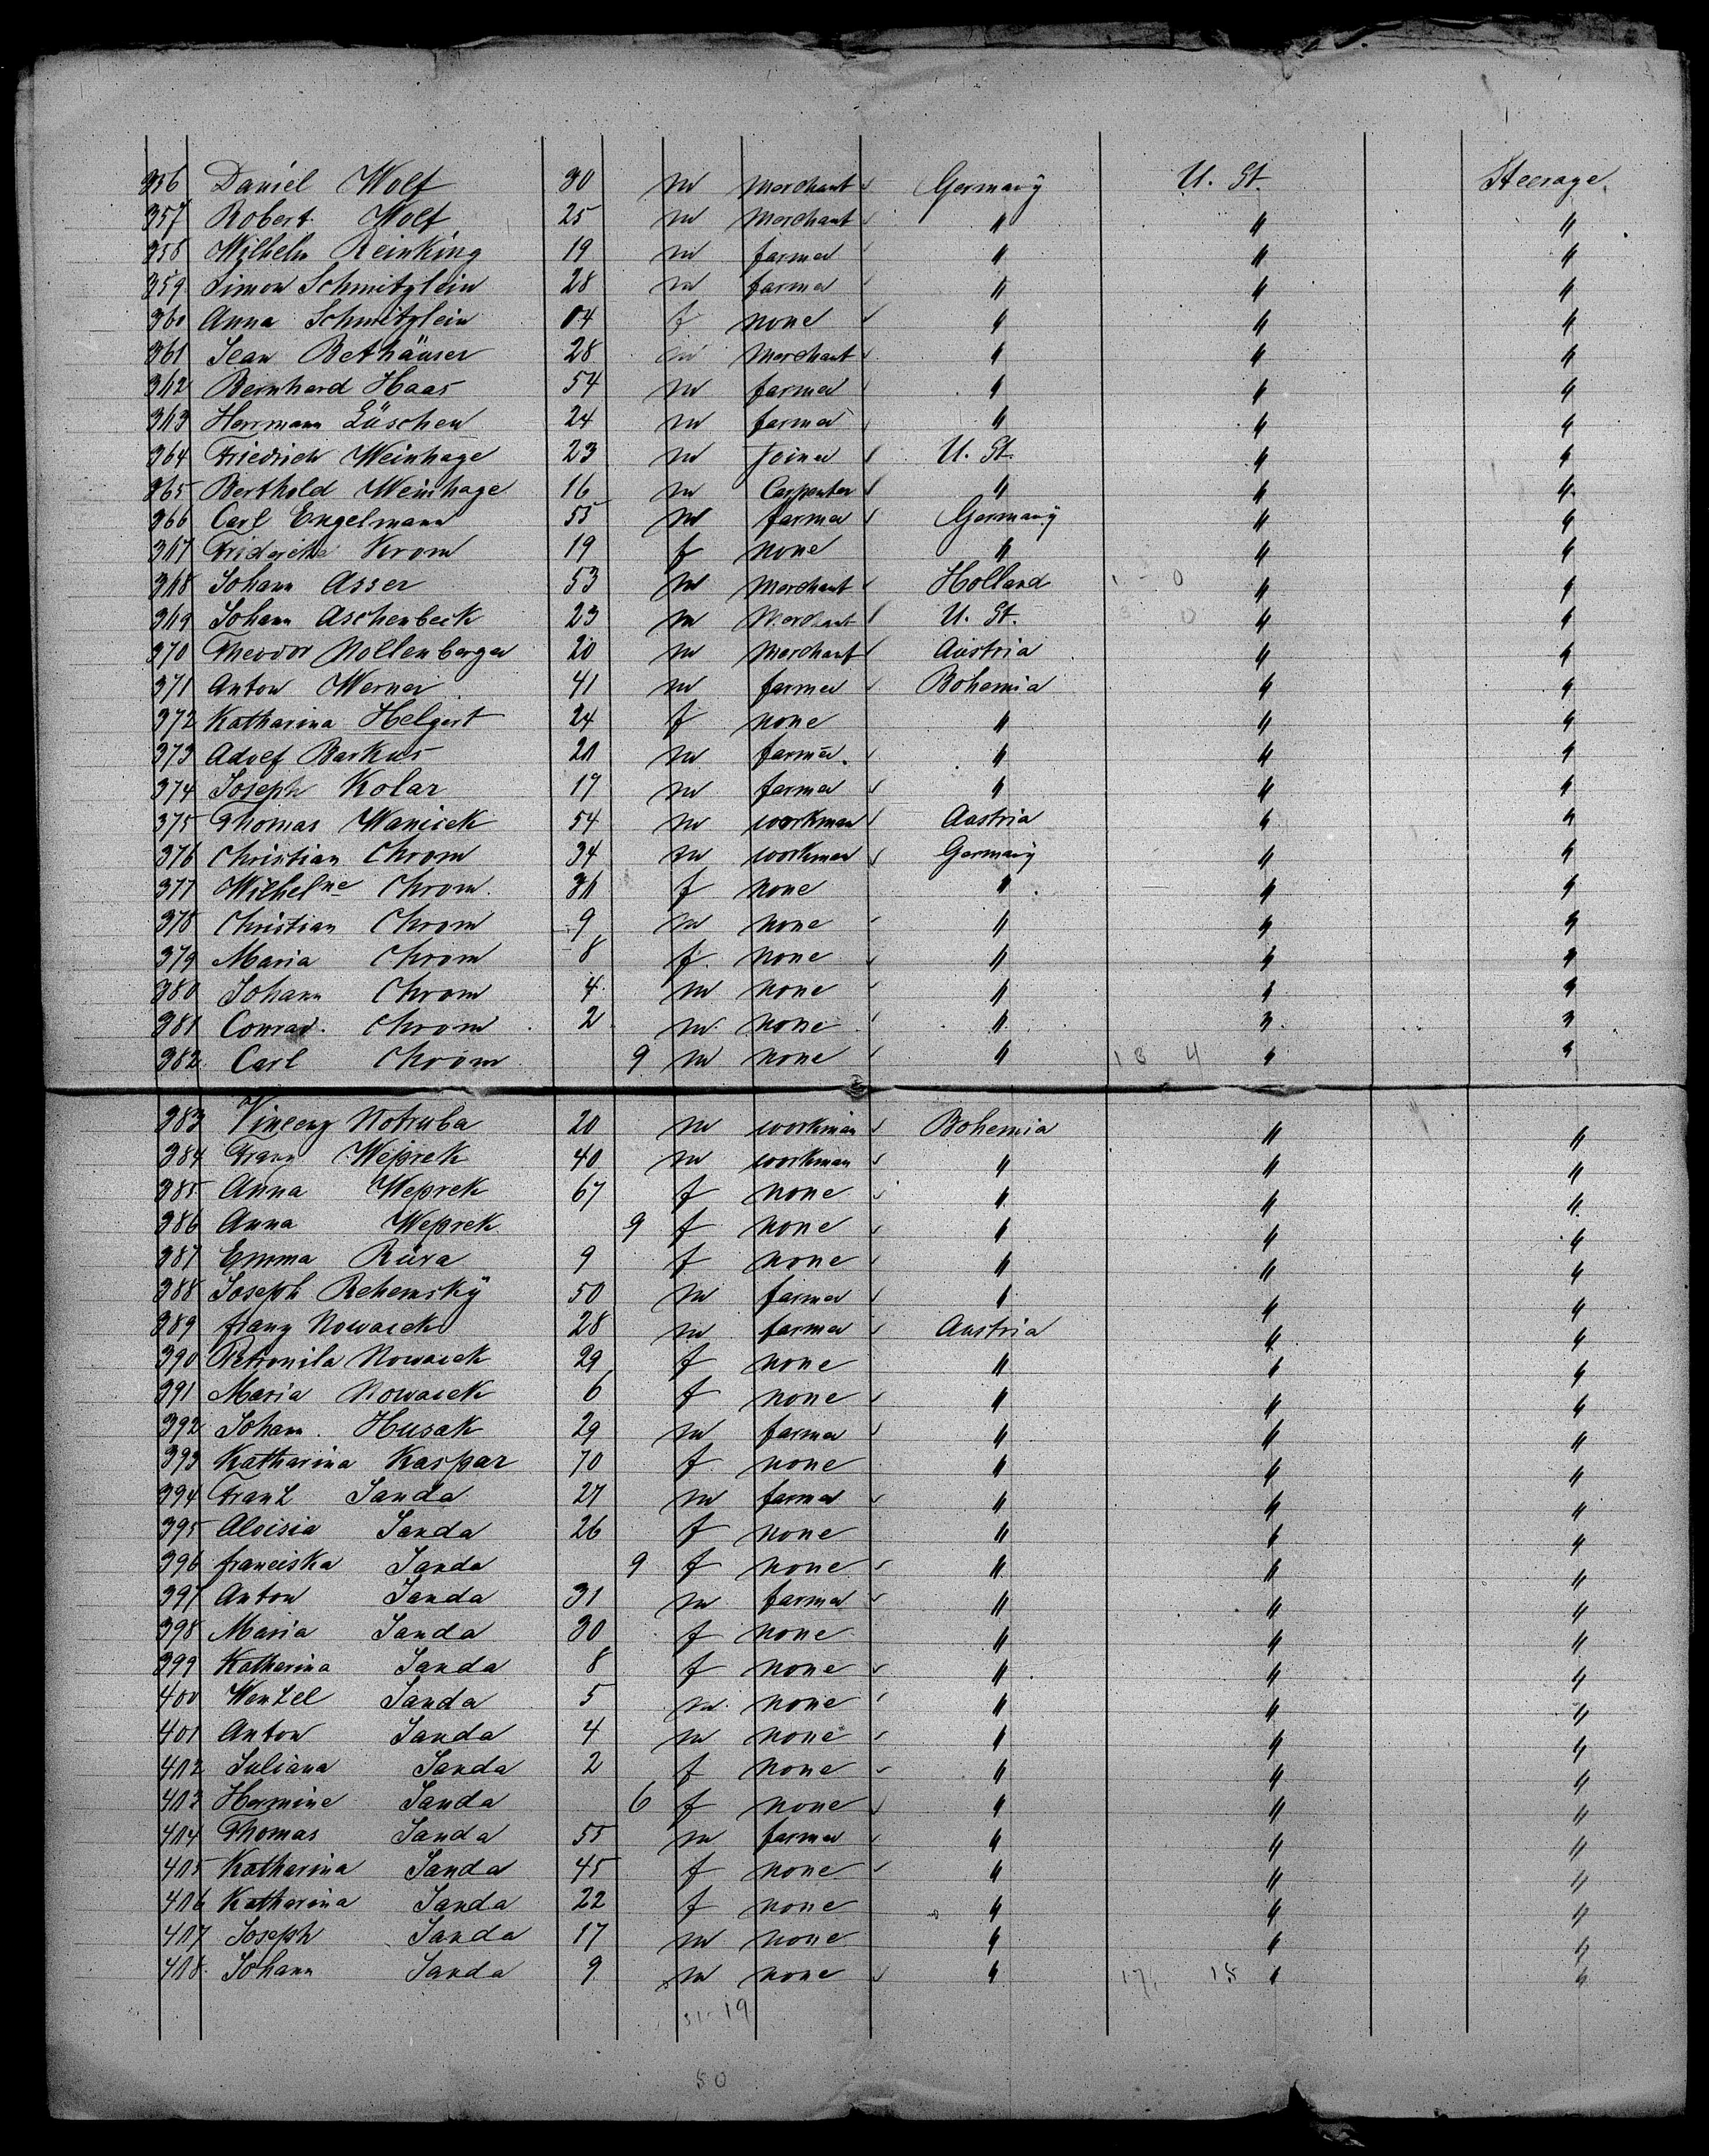 356 Daniel Wolf 30 m Merchant Germany U. St. Steerage.
357 Robert Wolf 25 m Merchant " " "
358 Wilhelm Reinking 19 m farmer " " "
359 Simon Schmitzlein 28 m farmer " " "
360 Anna Schmitzlein 04 f none " " "
361 Jean Bethäuser 28 m Merchant " " "
362 Bernhard Haas 54 m farmer " " "
363 Herrmann Lüschen 24 m farmer " " "
364 Friedrich Weinhage 23 m Joiner U. St. " "
365 Berthold Weinhage 16 m Carpenter " " "
366 Carl Engelmann 55 m farmer Germany " "
367 Friderike Krom 19 f none " " "
368 Johann Asser 53 m Merchant Holland " "
369 Johann Aschenbeck 23 m Merchant U. St. " "
370 Theodor Nollenberger 20 m Merchant Austria " "
371 Anton Werner 41 m farmer Bohemia " "
372 Katharina Helgert 24 f none " " "
373 Adolf Barkus 20 m farmer " " "
374 Joseph Kolar 17 m farmer " " "
375 Thomas Wanicek 54 m workman Austria " "
376 Christian Chrom 34 m workman Germany " "
377 Wilhelne Chrom 30 f none " " "
378 Christian Chrom 9 m none " " "
379 Maria Chrom 8 f none " " "
380 Johann Chrom 4 m none " " "
381 Conrad Chrom 2 m none " " "
382 Carl Chrom 9 m none " 18 4 " "
383 Vincenz Notruba 20 m workman Bohemia " "
384 Franz Weprek 40 m workman " " "
385 Anna Weprek 67 f none " " "
386 Anna Weprek 9 f none " " "
387 Emma Rüva 9 f none " " "
388 Joseph Rehemsky 50 m farmer " " "
389 franz Nowacek 28 m farmer Austria " "
390 Petronila Nowacek 29 f none " " "
391 Maria Nowacek 6 f none " " "
392 Johann Husak 29 m farmer " " "
393 Katharina Kaspar 70 f none " " "
394 Franz Janda 27 m farmer " " "
395 Aloisia Janda 26 f none " " "
396 franciska Janda 9 f none " " "
397 Anton Janda 31 m farmer " " "
398 Maria Janda 30 f none " " "
399 Katharina Janda 8 f none " " "
400 Wenzel Janda 5 m none " " "
401 Anton Janda 4 m none " " "
402 Juliana Janda 2 f none " " "
403 Hermine Janda 6 f none " " "
404 Thomas Janda 55 m farmer " " "
405 Katharina Janda 45 f none " " "
406 Katharina Janda 22 f none " " "
407 Joseph Janda 17 m none " " "
408 Johann Janda 9 m none " 17 15 " "
31-19
50